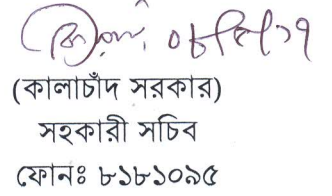 (কালাচাঁদ সরকার)
সহকারী সচিব
ফোনঃ ৮১৮১০৯৫